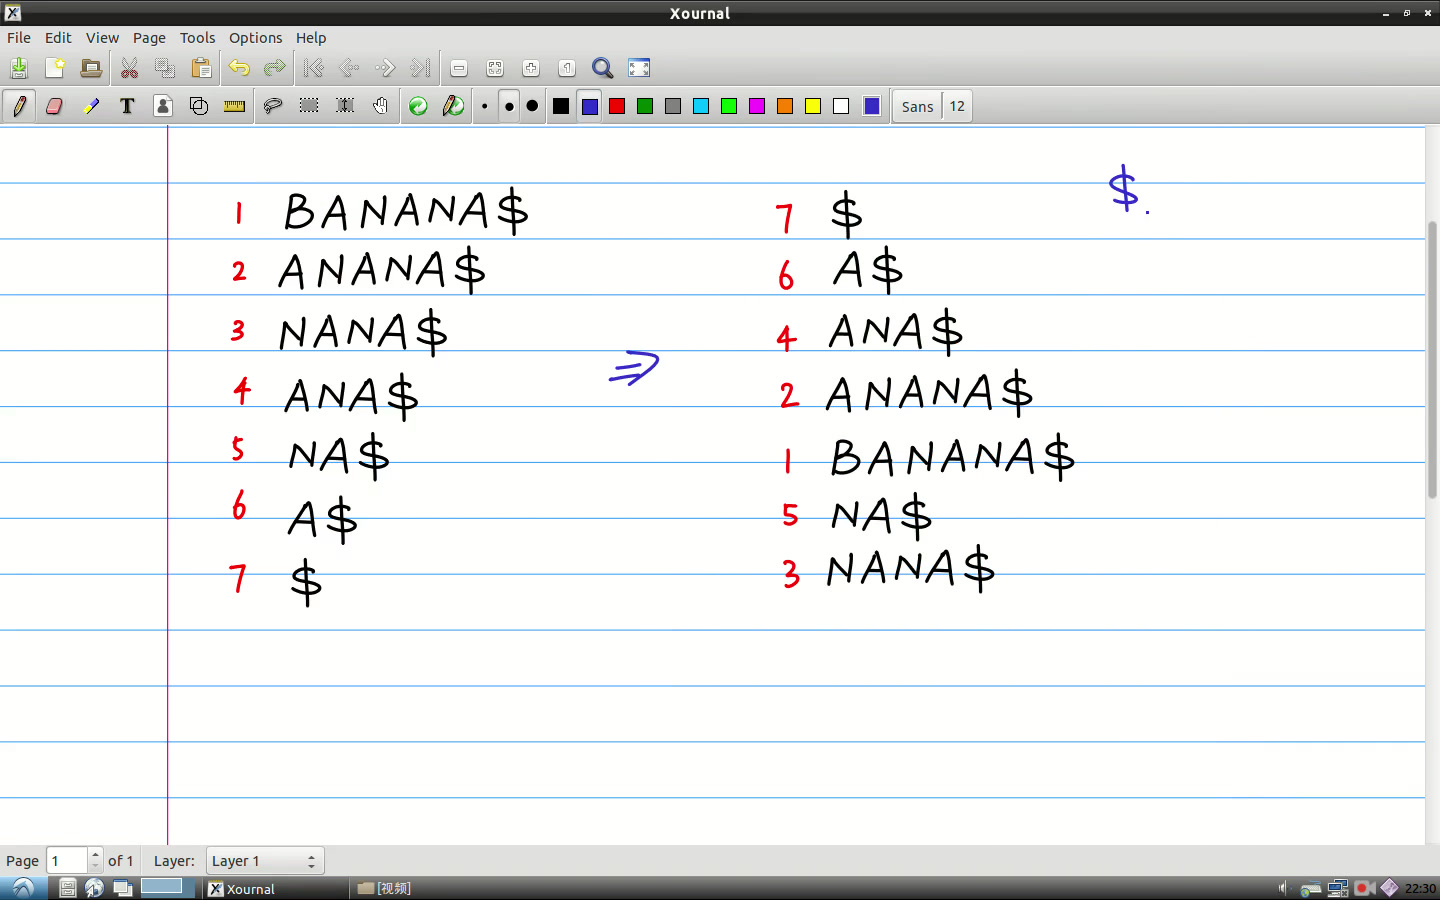 Xournal
File Edit View Page Tools Options Help
T Sans 12
$.
1 BANANA$ 7 $
2 ANANA$ 6 A$
3 NANA$ 4 ANA$
⇒
4 ANA$ 2 ANANA$
5 NA$ 1 BANANA$
6 A$ 5 NA$
7 $ 3 NANA$
Page 1 of 1 Layer: Layer 1
Xournal [视频] 22:30